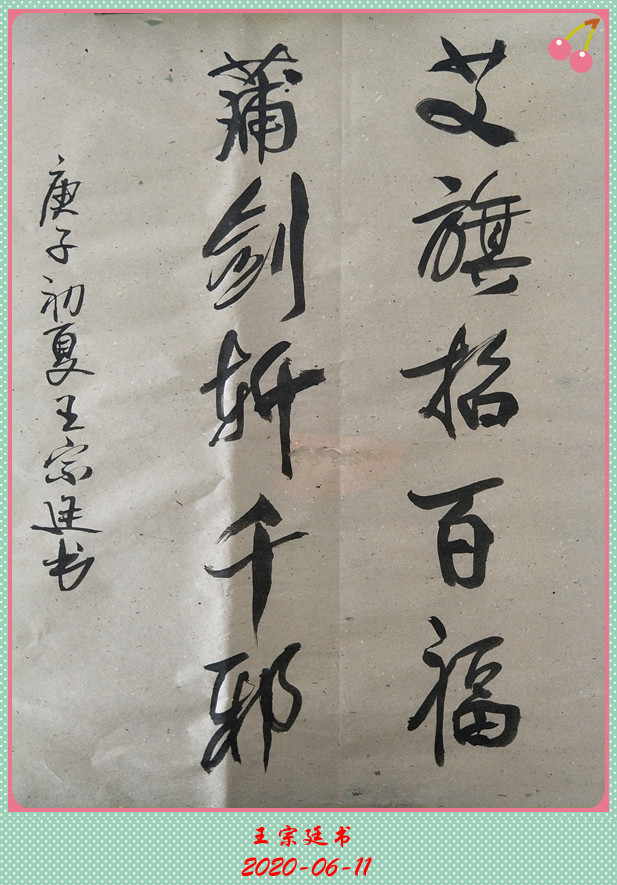 艾旗招百福
蒲剑斩千邪
庚子初夏王宗廷书
王宗廷书
2020-06-11